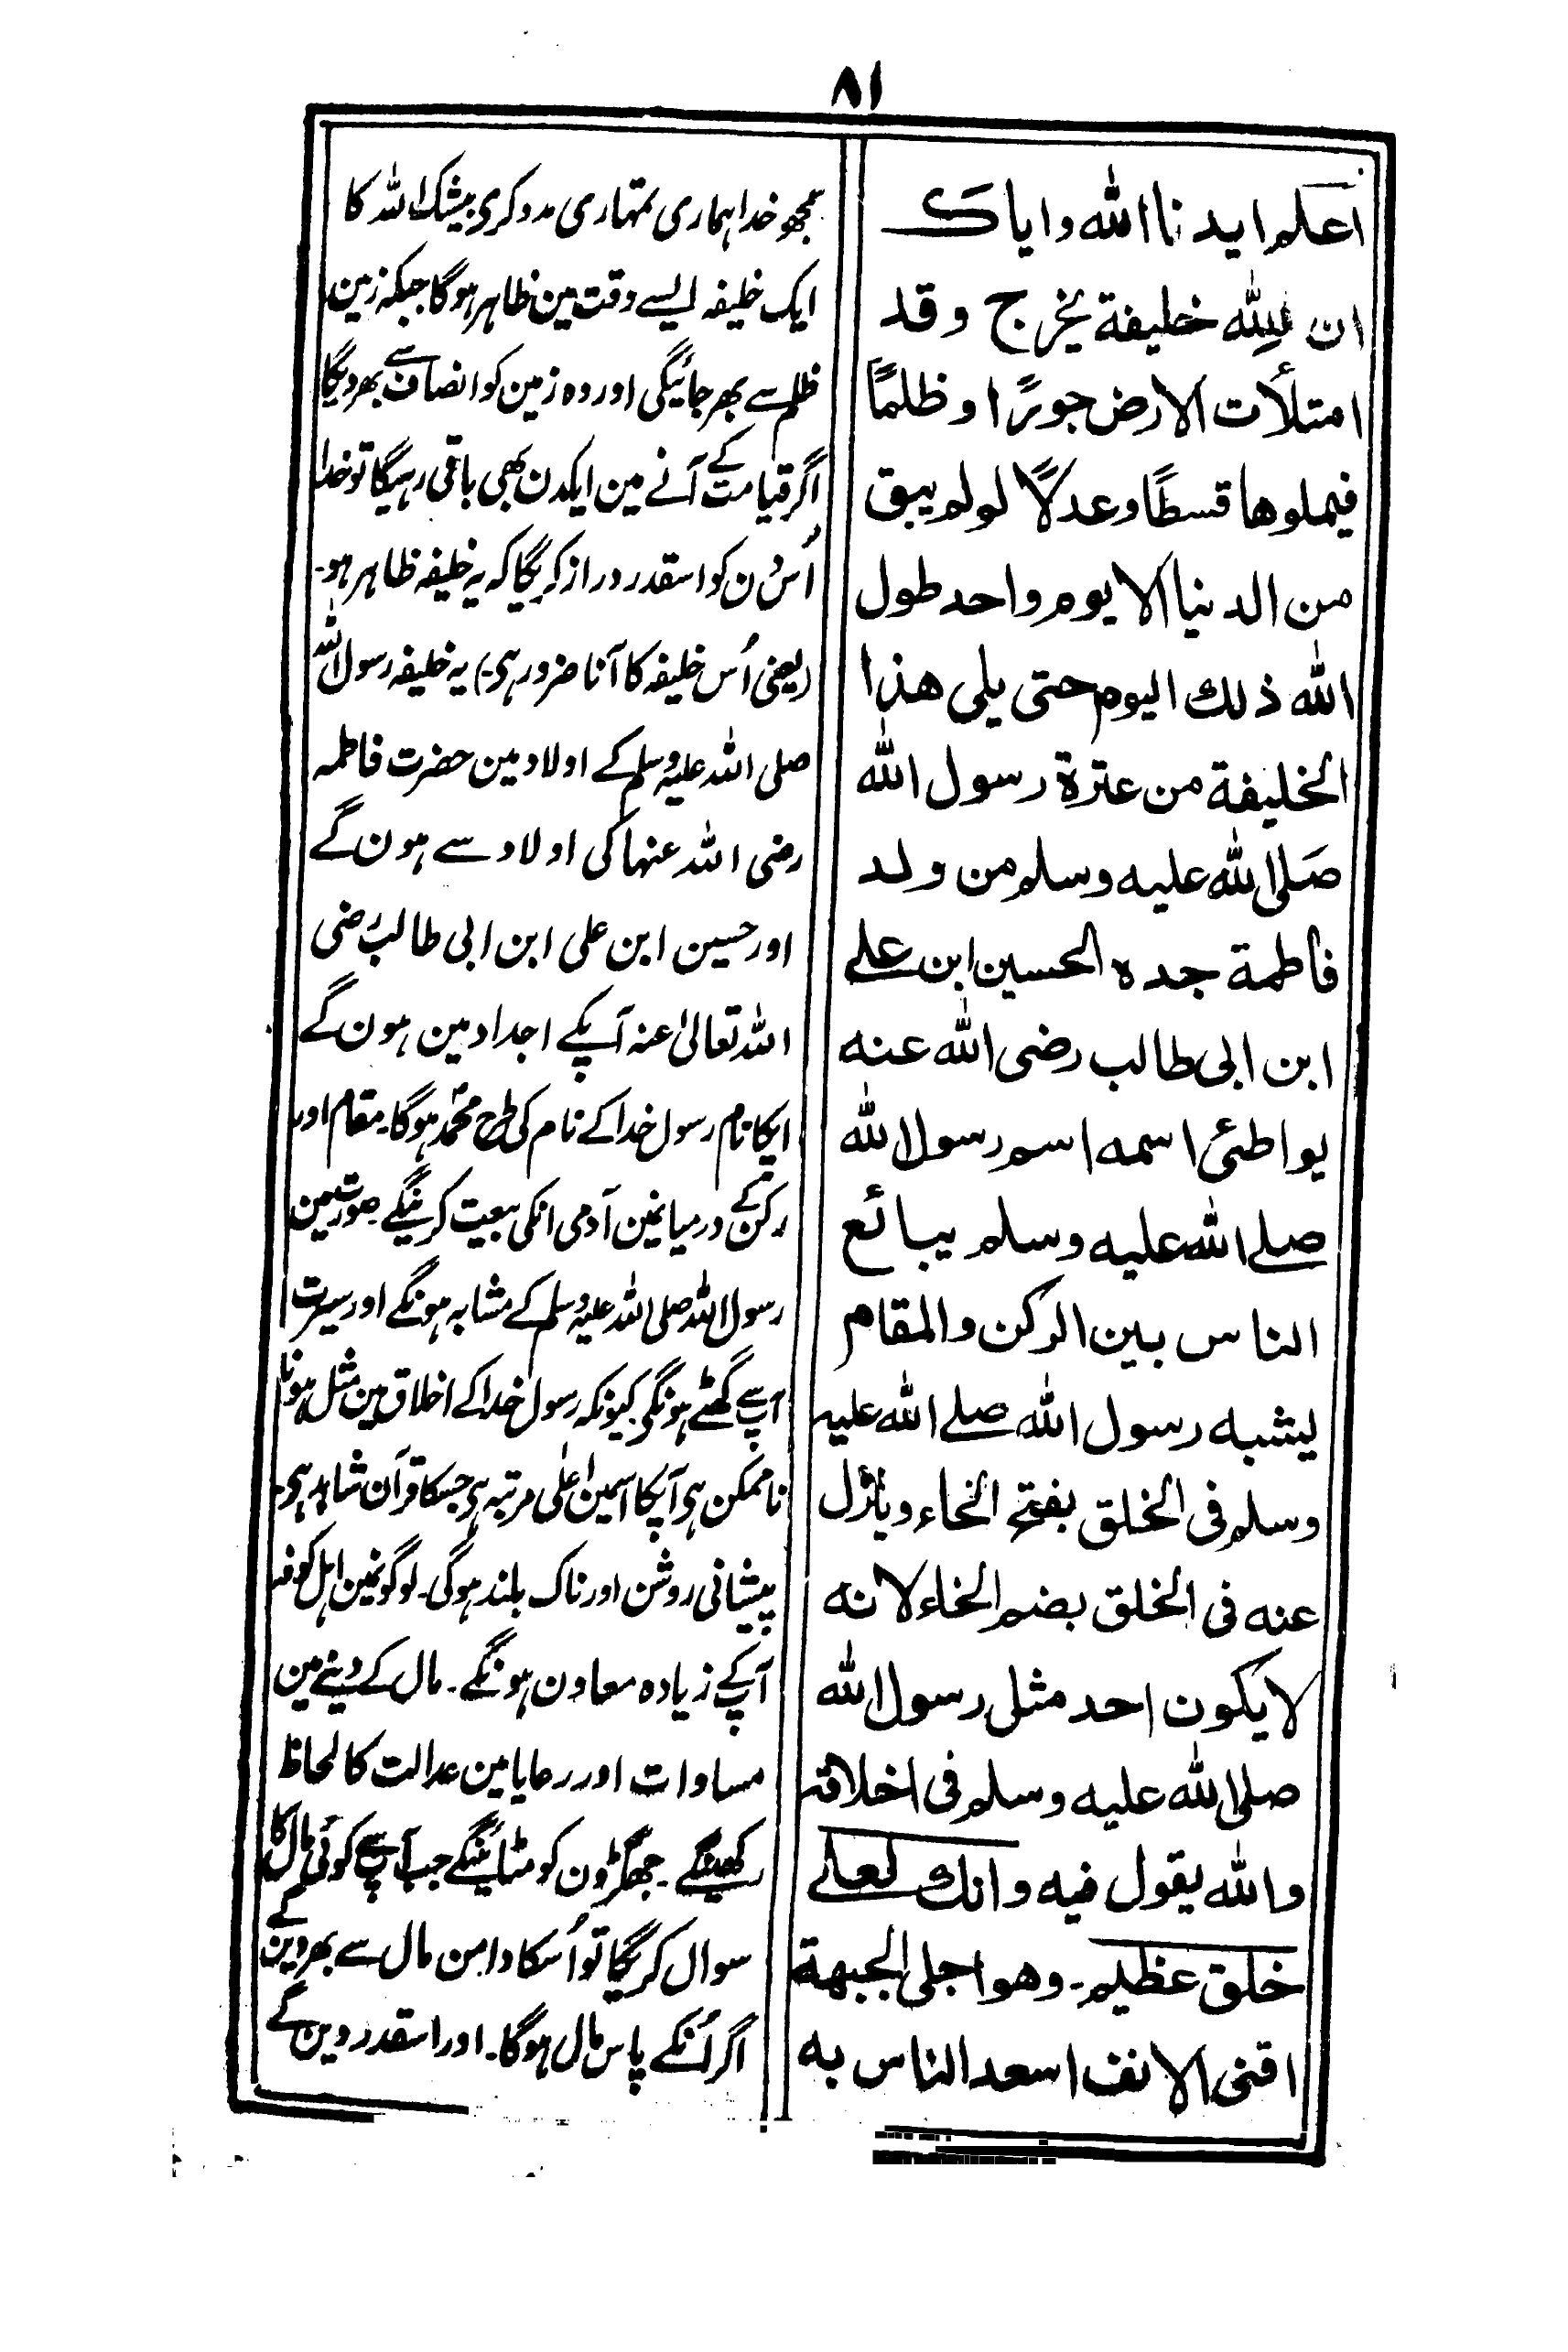 ٨١
اعلم ايدنا الله واياك
ان لله خليفة يخرج وقد
امتلأت الارض جورًا وظلمًا
فيملوها قسطًا وعدلًا لولم يبق
من الدنيا الا يوم واحد طول
الله ذلك اليوم حتى يلى هذا
الخليفة من عترة رسول الله
صَلى الله عليه وسلم من ولد
فاطمة جده الحسين ابن علے
ابن ابى طالب رضى الله عنه
يواطئ اسمه اسم رسول الله
صلے الله عليه وسلم يبائع
الناس بين الركن والمقام
يشبه رسول الله صلے الله عليہ
وسلم فى الخلق بفتح الخاء وينزل
عنه فى الخلق بضم الخاء لانه
لا يكون احد مثل رسول الله
صلى الله عليه وسلم فى اخلاقہ
والله يقول فيه وانك لعلے
خلق عظيم۔ وهو اجلى الجبهة
اقنى الانف اسعد الناس به
سمجھو خدا ہماری تمہاری مدد کری بیشک اللہ کا
ایک خلیفہ ایسے وقت مین ظاہر ہوگا جبکہ زمین
ظلم سے بھر جائیگی اور وہ زمین کو انصاف سے بھر دیگا
اگر قیامت کے آنے مین ایکدن بھی باقی رہیگا تو خدا
اُس دن کو اسقدر دراز کریگا کہ یہ خلیفہ ظاہر ہو۔
(یعنی اُس خلیفہ کا آنا ضرور ہی۔) یہ خلیفہ رسول اللہ
صلی اللہ علیہ وسلم کے اولاد مین حضرت فاطمہ
رضی اللہ عنہا کی اولاد سے ہون گے
اور حسین ابن علی ابن ابی طالب رضی
اللہ تعالیٰ عنہ آپکے اجداد مین ہون گے
آپکا نام رسول خدا کے نام کی طرح محمد ہوگا۔ مقام اور
رکن کے درمیانمین آدمی انکی بیعت کرینگے۔ صورتمین
رسول اللہ صلی اللہ علیہ وسلم کے مشابہ ہونگے اور سیرت
آپ سے گھٹے ہونگی کیونکہ رسول خدا کے اخلاق مین مثل ہونا
ناممکن ہی آپکا اسمین اعلٰی مرتبہ ہی جسکا قرآن شاہد ہی۔
پیشانی روشن اور ناک بلند ہوگی۔ لوگونمین اہل کوفہ
آپکے زیادہ معاون ہونگے۔ مال کے دینے مین
مساوات اور رعایا مین عدالت کا لحاظ
رکھینگے۔ جھگڑون کو مٹائینگے جب آپ سے کوئی مال کا
سوال کریگا تو اُسکا دامن مال سے بھر دین گے
اگر اُنکے پاس مال ہوگا۔ اور اسقدر دین گے